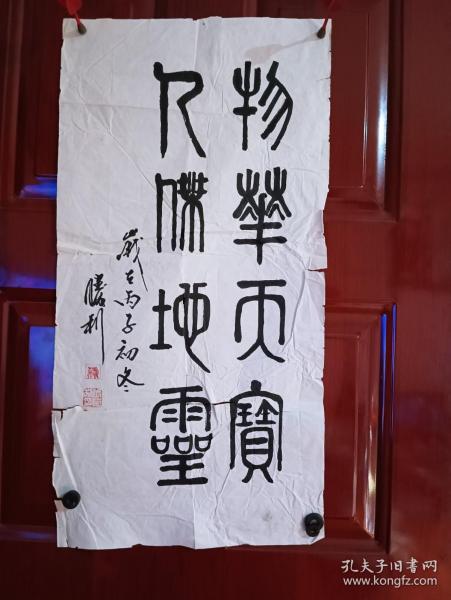 物華天寶
人傑地靈
歲在丙子初冬
勝利
孔夫子旧书网
www.kongfz.com